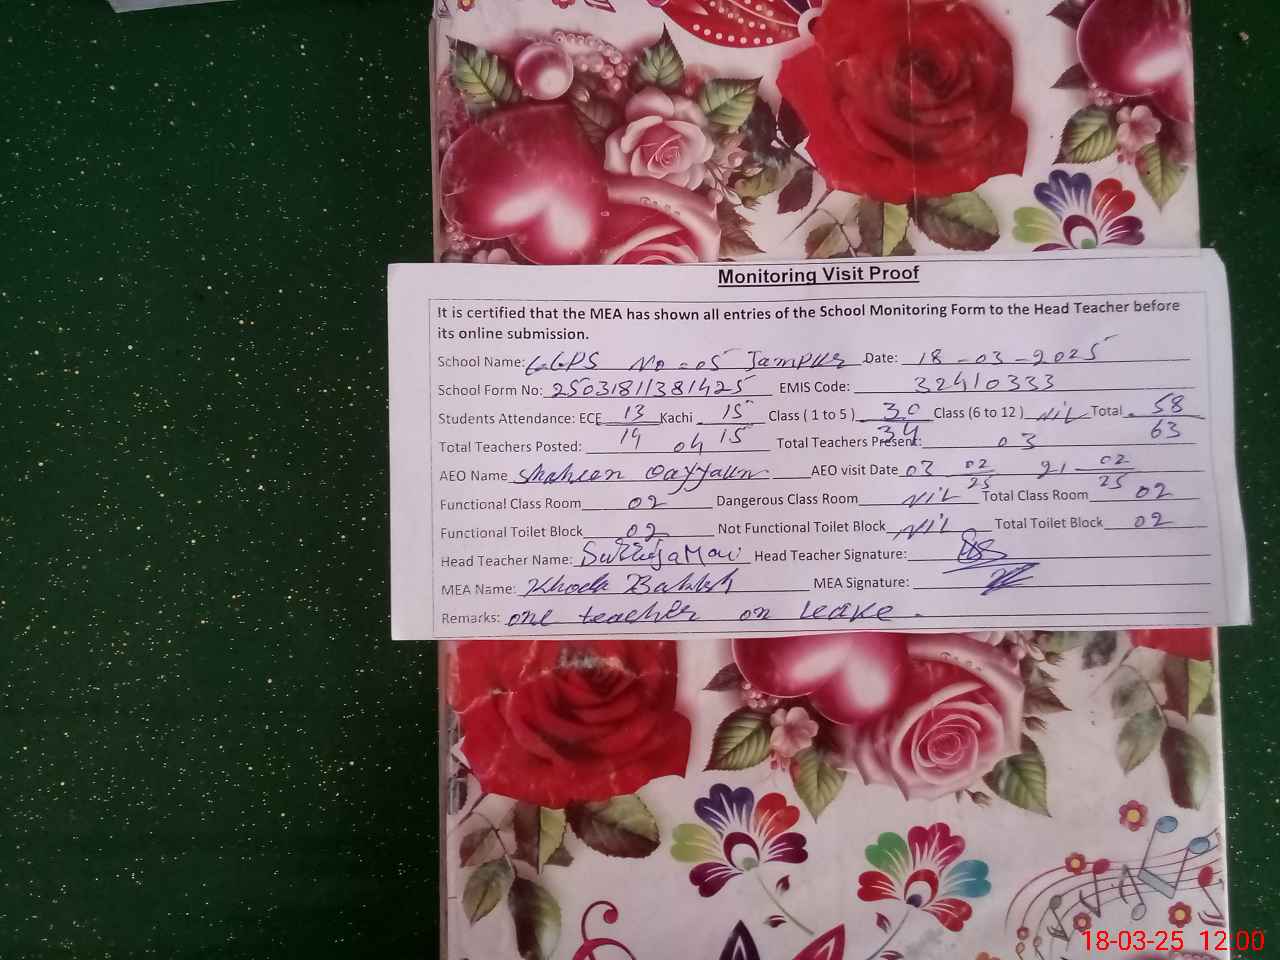 Monitoring Visit Proof
It is certified that the MEA has shown all entries of the School Monitoring Form to the Head Teacher before
its online submission.
School Name: GGPS No. 05 Jampur Date: 18-03-2025
School Form No: 25031811381425 EMIS Code: 32410333
Students Attendance: ECE 13 Kachi 15 Class ( 1 to 5 ) 30 Class (6 to 12 ) NIL Total 58
14 15 34 63
Total Teachers Posted: 04 Total Teachers Present: 03
AEO Name Shaheen AEO visit Date 03 02/25 21 02/25
Functional Class Room 02 Dangerous Class Room NIL Total Class Room 02
Functional Toilet Block 02 Not Functional Toilet Block NIL Total Toilet Block 02
Head Teacher Name: Head Teacher Signature:
MEA Name: Khoda Bakhsh MEA Signature:
Remarks: one teacher on leave.
18-03-25 12:00